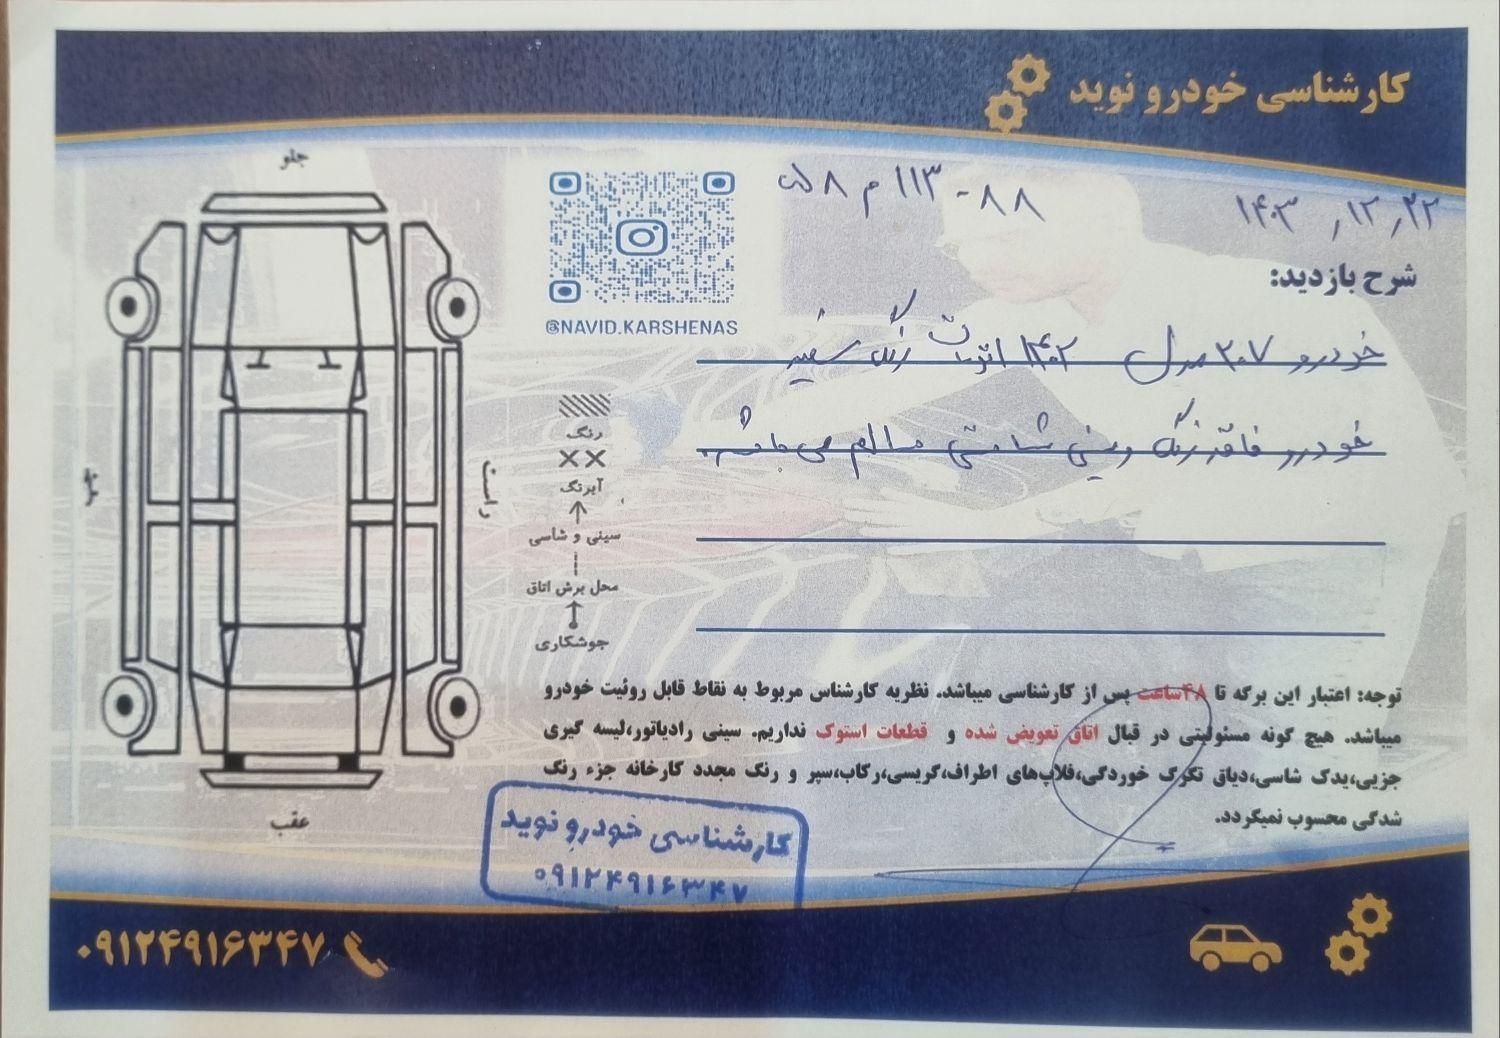 کارشناسی خودرو نوید
۱۴۰۳/۱۲/۲۲
۸۸ - ۱۱۳ م ۵۸
شرح بازدید:
خودرو ۲۰۷ مدل ۱۴۰۲ اتومات رنگ سفید
خودرو فاقد رنگ و سینی شاستی سالم می باشد.
@NAVID.KARSHENAS
جلو
چپ
راست
عقب
رنگ
آبرنگ
سینی و شاسی
محل برش اتاق
جوشکاری
توجه: اعتبار این برگه تا ۴۸ساعت پس از کارشناسی میباشد. نظریه کارشناس مربوط به نقاط قابل روئیت خودرو
میباشد. هیچ گونه مسئولیتی در قبال اتاق تعویض شده و قطعات استوک نداریم. سینی رادیاتور،لیسه گیری
جزیی،یدک شاسی،دیاق تگرگ خوردگی،فلاپ‌های اطراف،گریسی،رکاب،سپر و رنگ مجدد کارخانه جزء رنگ
شدگی محسوب نمیگردد.
کارشناسی خودرو نوید
۰۹۱۲۴۹۱۶۳۴۷
۰۹۱۲۴۹۱۶۳۴۷